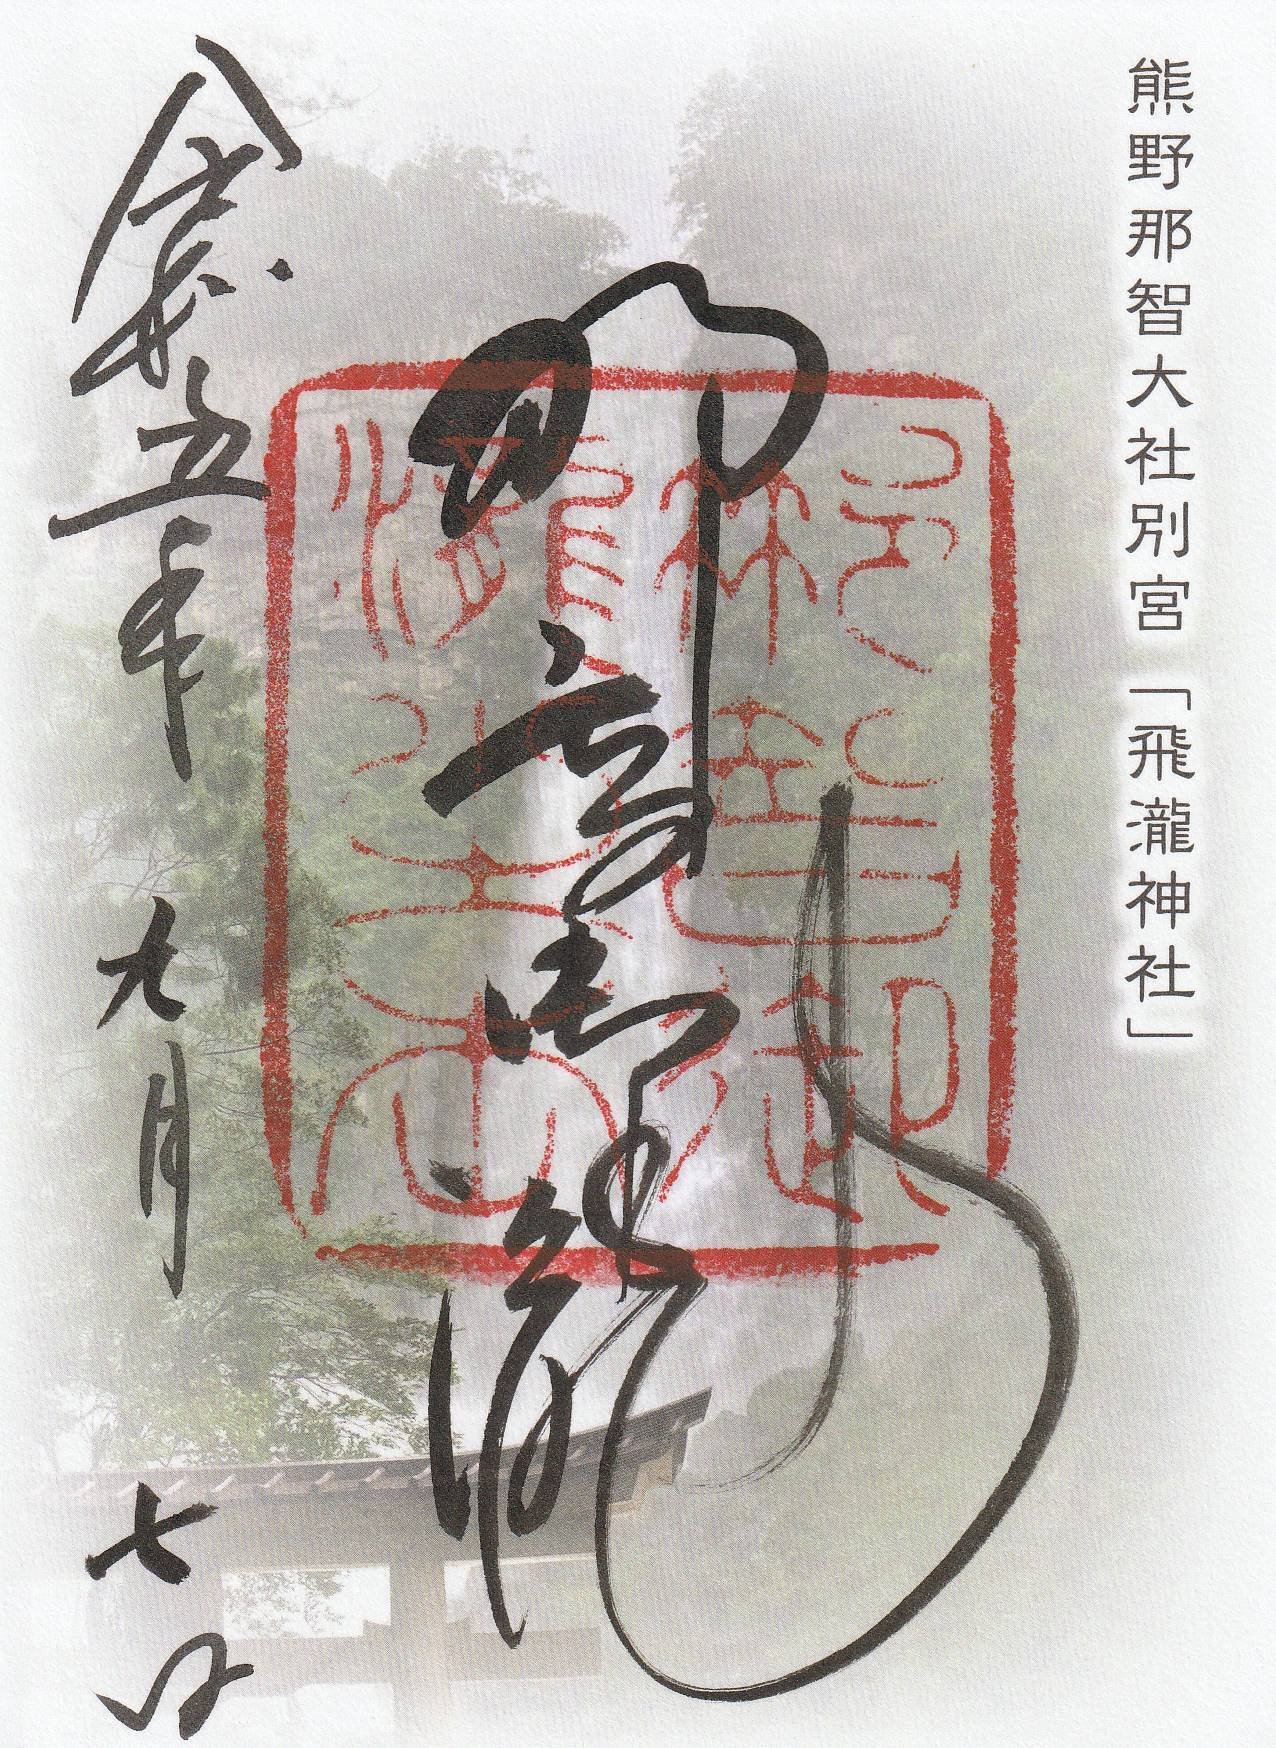 熊野那智大社別宮「飛瀧神社」
那智御瀧
令和五年九月七日